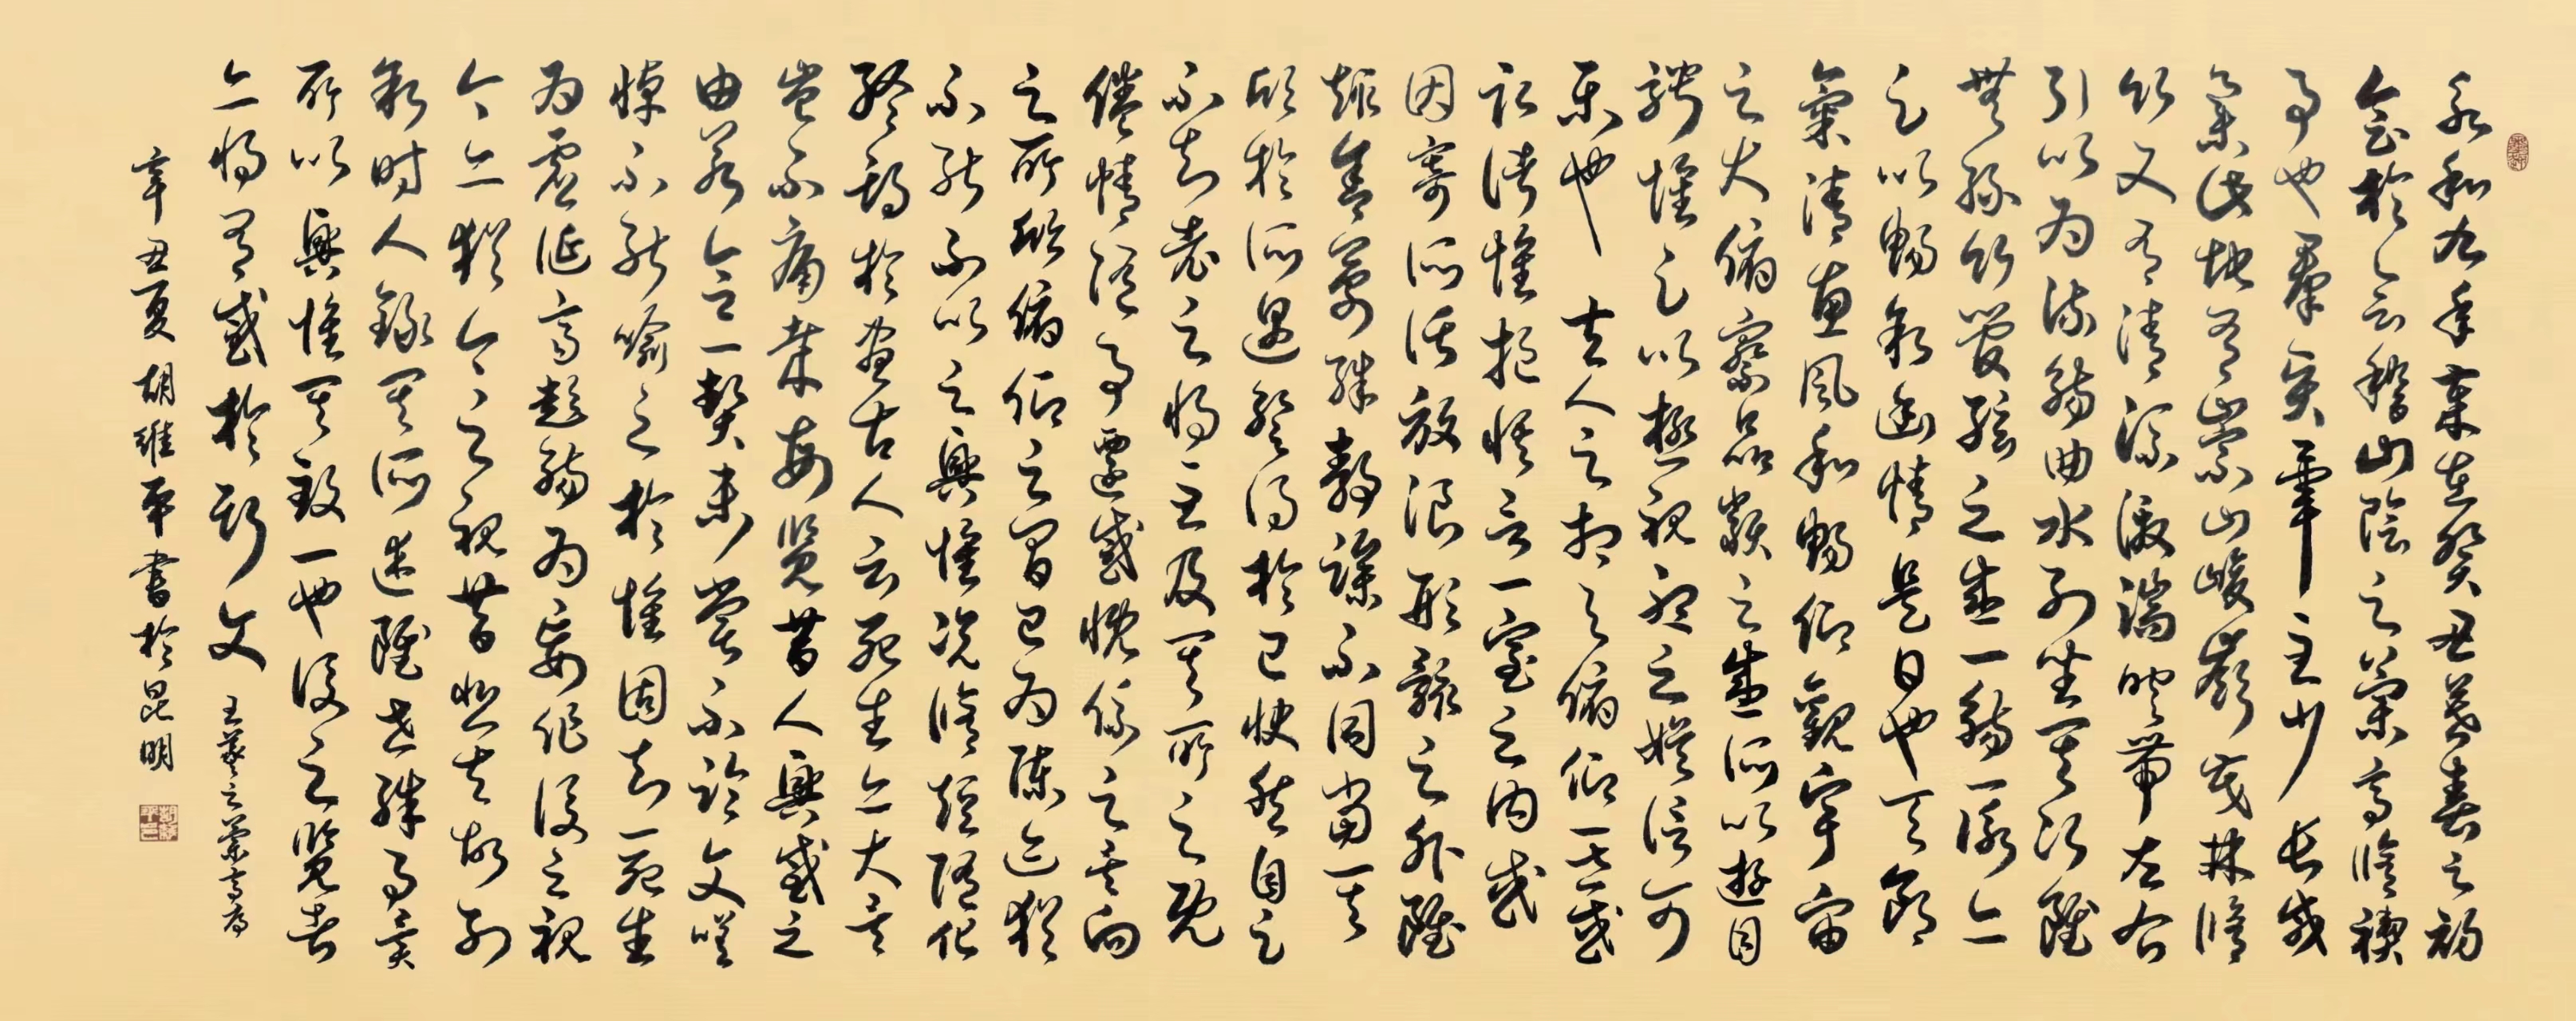 永和九年歲在癸丑暮春之初
會於會稽山陰之蘭亭脩禊
事也羣賢畢至少長咸
集此地有崇山峻嶺茂林脩
竹又有清流激湍映帶左右
引以為流觴曲水列坐其次雖
無絲竹管弦之盛一觴一詠亦
足以暢敘幽情是日也天朗
氣清惠風和暢仰觀宇宙
之大俯察品類之盛所以遊目
騁懷足以極視聽之娛信可
樂也夫人之相與俯仰一世或
取諸懷抱悟言一室之內或
因寄所託放浪形骸之外雖
趣舍萬殊靜躁不同當其
欣於所遇暫得於己快然自足
不知老之將至及其所之既
倦情隨事遷感慨係之矣向
之所欣俯仰之間已為陳迹猶
不能不以之興懷況脩短隨化
終期於盡古人云死生亦大矣
豈不痛哉每覽昔人興感之
由若合一契未嘗不臨文嗟
悼不能喻之於懷固知一死生
為虛誕齊彭殤為妄作後之視
今亦猶今之視昔悲夫故列
敘時人錄其所述雖世殊事異
所以興懷其致一也後之覽者
亦將有感於斯文 王羲之蘭亭序
辛丑夏 胡維平書於昆明